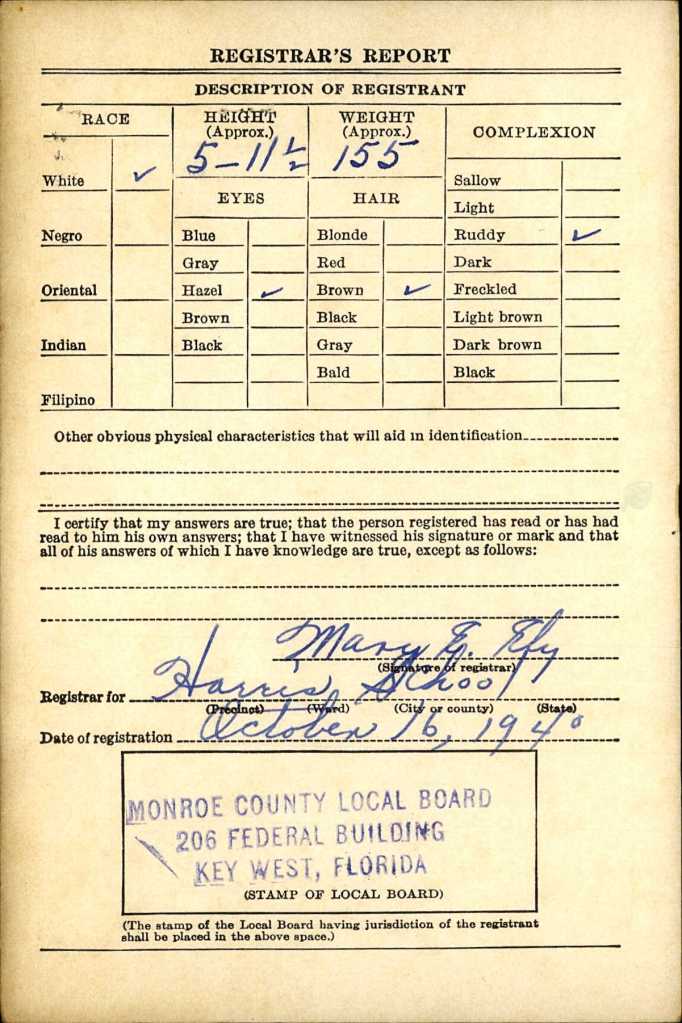 REGISTRAR'S REPORT
DESCRIPTION OF REGISTRANT
RACE
HEIGHT (Approx.)
WEIGHT (Approx.)
COMPLEXION
5-11 1/2
155
White ✓
EYES
HAIR
Sallow
Light
Negro
Blue
Blonde
Ruddy ✓
Gray
Red
Dark
Oriental
Hazel ✓
Brown ✓
Freckled
Brown
Black
Light brown
Indian
Black
Gray
Dark brown
Bald
Black
Filipino
Other obvious physical characteristics that will aid in identification
I certify that my answers are true; that the person registered has read or has had
read to him his own answers; that I have witnessed his signature or mark and that
all of his answers of which I have knowledge are true, except as follows:
Mary E.
(Signature of registrar)
Registrar for Harris School
(Precinct) (Ward) (City or county) (State)
Date of registration October 16, 1940
MONROE COUNTY LOCAL BOARD
206 FEDERAL BUILDING
KEY WEST, FLORIDA
(STAMP OF LOCAL BOARD)
(The stamp of the Local Board having jurisdiction of the registrant
shall be placed in the above space.)